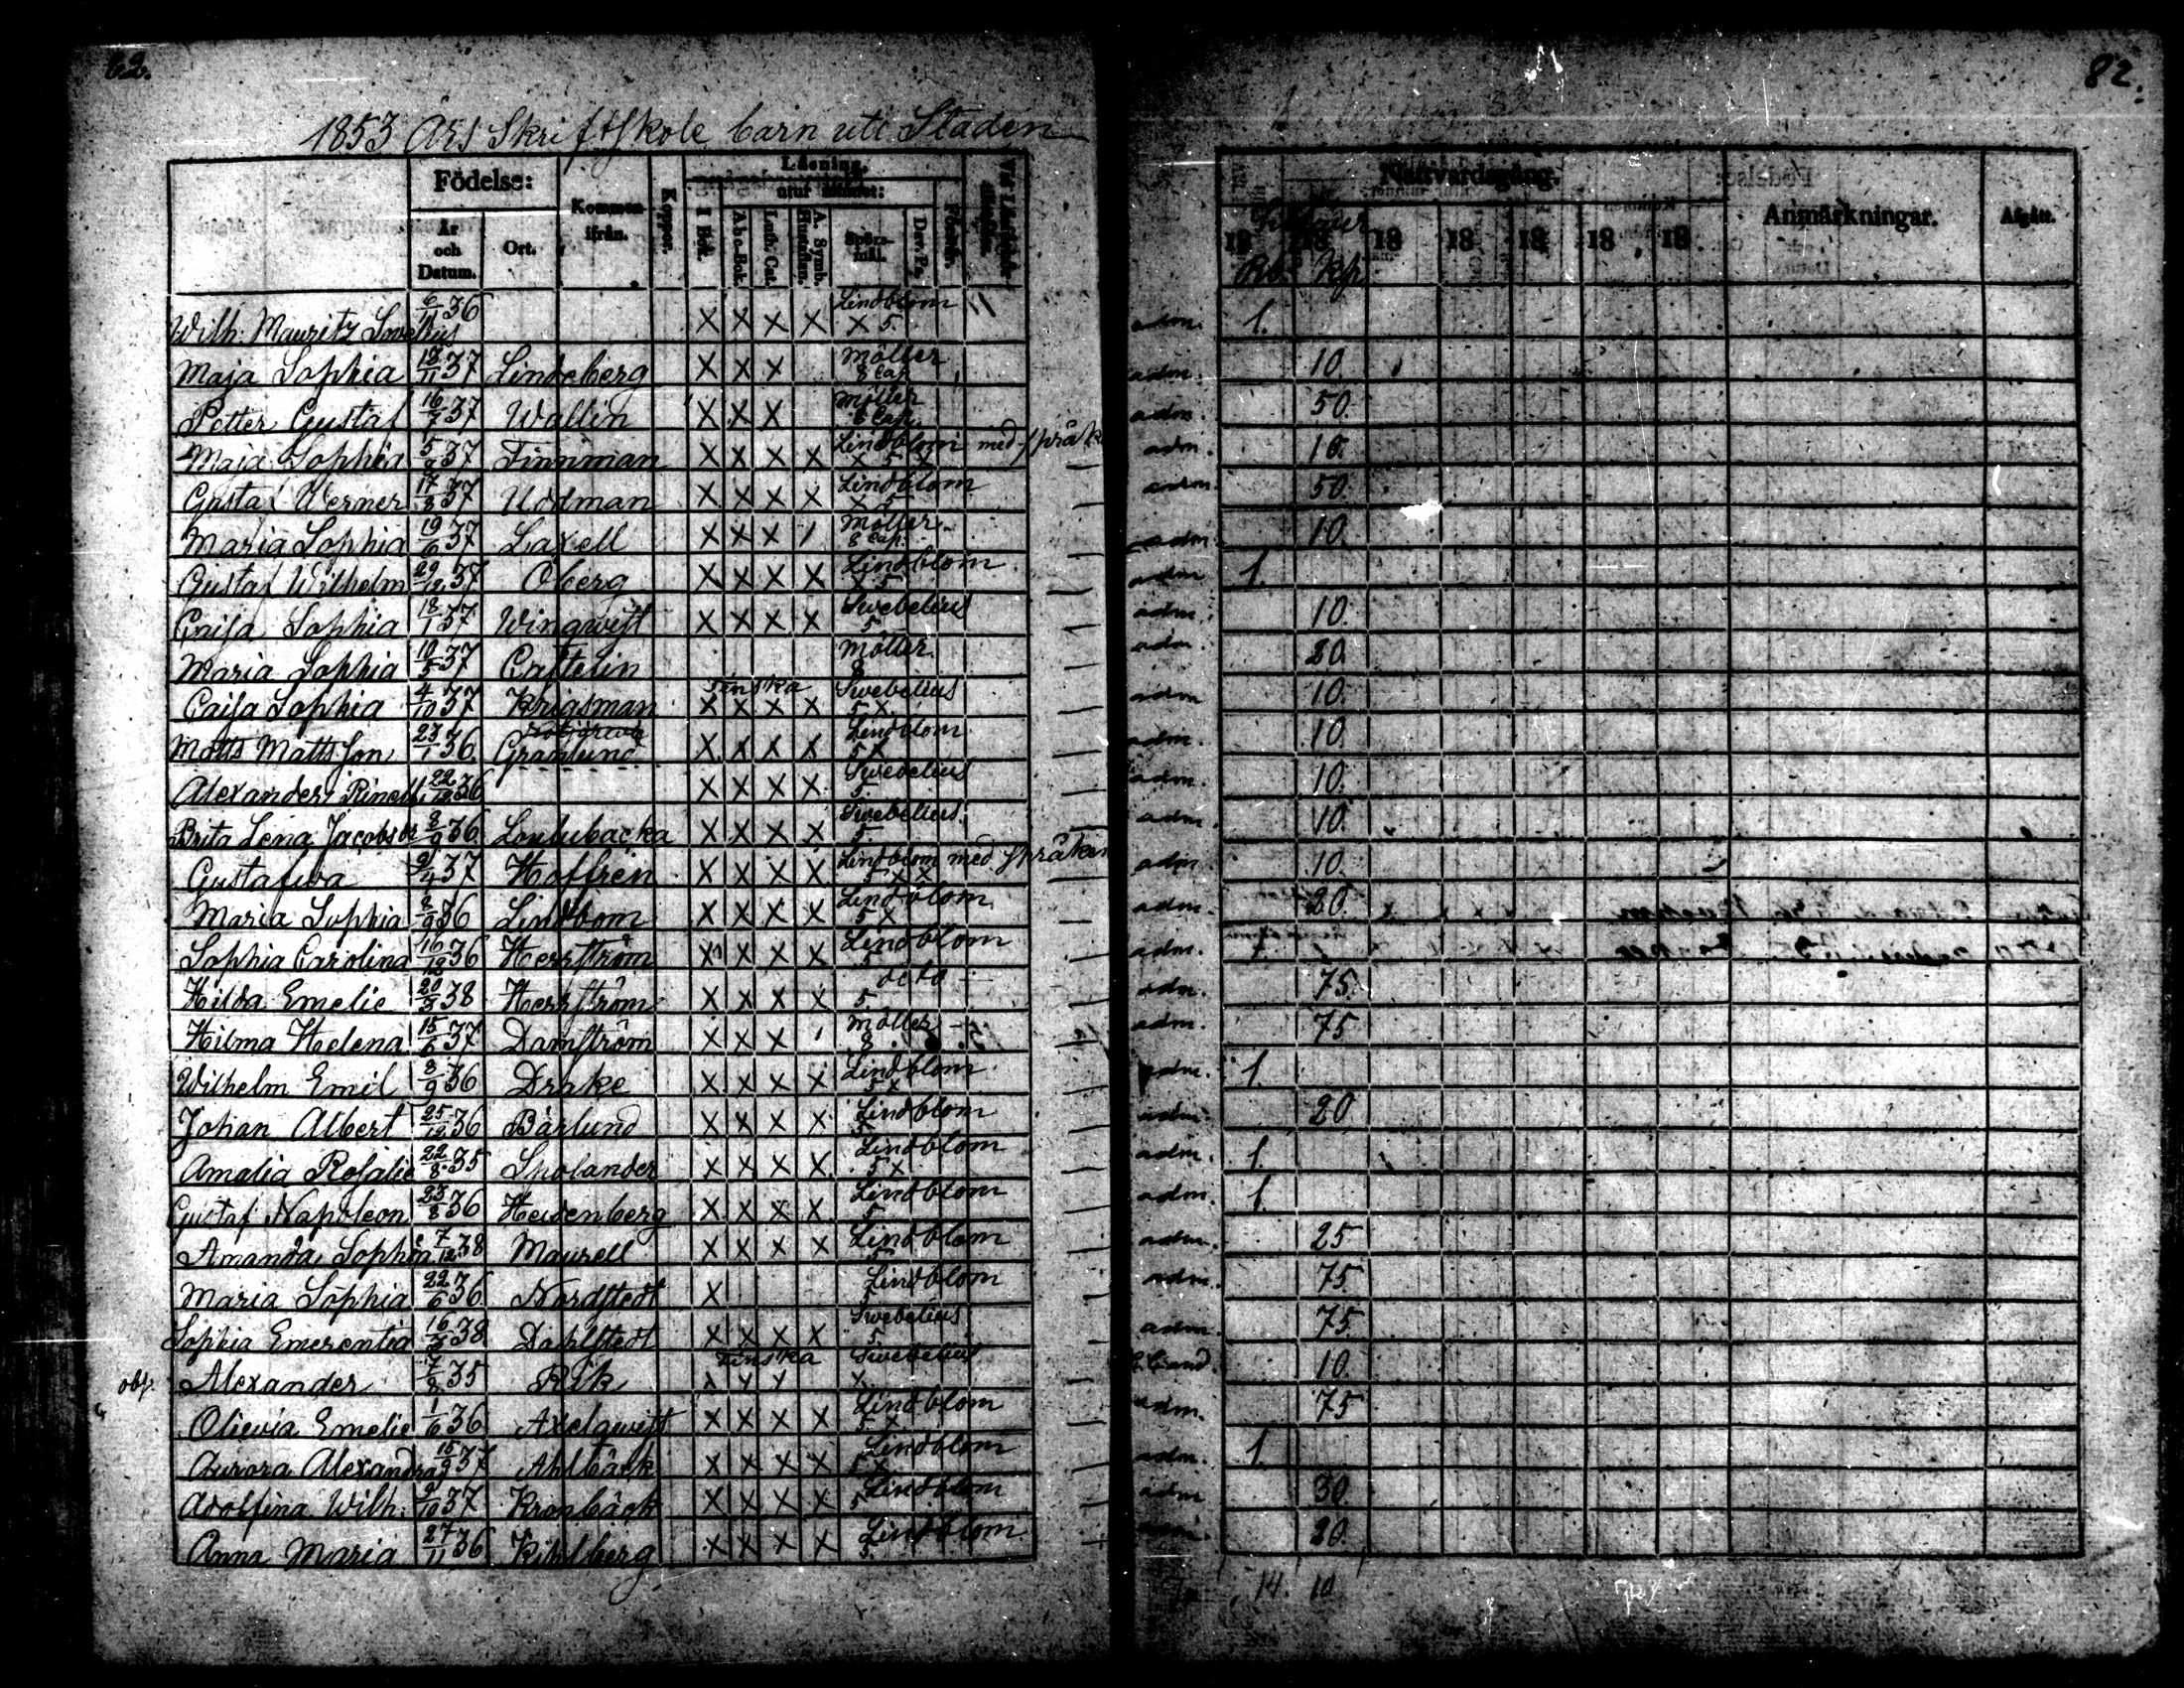 62.
82.
1853 Års Skriftskole barn uti Staden
Födelse:
År och Datum.
Ort.
Kommen ifrån.
Koppor.
Läsning.
utur Minnet:
I Bok.
A b c-Bok.
Luth. Cat.
A. Symb. Hustaflan.
Spörsmål.
Dav. Ps.
Nattvardsgång.
18 18 18 18 18 18 18
Rb. Kp.
Anmärkningar.
Afgått.
Wilh: Mauritz 6/11 36 X X X X Lindblom X 5. adm. 1.
Maja Sophia 18/11 37 Lindeberg X X X Möller 8 Cap adm. 10.
Petter Gustaf 16/7 37 Wallin X X X Möller 6 Cap. adm. 50.
Maja Sophia 5/9 37 Finnman X X X X Lindblom X 5 med språk adm. 10.
Gustaf Werner 17/8 37 Uddman X X X X Lindblom X 5 adm. 50.
Maria Sophia 19/6 37 Laxell X X X Möller 8 Cap. adm. 10.
Gustaf Wilhelm 29/12 37 Öberg X X X X Lindblom X 5 adm 1.
Caisa Sophia 18/1 37 Wingwist X X X X Swebelius 5 adm. 10.
Maria Sophia 10/5 37 Castelin Möller 8 adm. 20.
Caisa Sophia 4/10 37 Krigsman Finska X X X X Swebelius 5 X adm 10.
Matts Mattsson 23/1 36. Granlund X X X X Lindblom 5 X adm. 10.
Alexander Rinell 22/12 36 X X X X Swebelius 5 adm. 10.
Brita Lena Jacobsdr 8/9 36 Lonbubacka X X X X Swebelius 5. adm. 10.
Gustafwa 9/4 37 Hoffrén X X X X Lindblom med språken 5 X X adm. 10.
Maria Sophia 8/9 36 Lindbom X X X X Lindblom 5 X adm. 20.
Sophia Carolina 16/12 36 Herrström X X X X Lindblom 5 adm.
Hilda Emelie 20/3 38 Herrström X X X X dcto 5. adm. 75.
Hilma Helena 15/6 37 Damström X X X Möller 8 adm. 75
Wilhelm Emil 8/9 36 Drake X X X X Lindblom 5 X adm. 1.
Johan Albert 25/12 36 Bärlund X X X X Lindblom X adm. 20
Amalia Rosalie 22/8 35 Sholander X X X X Lindblom 5 X adm. 1.
Gustaf Napoleon 23/8 36 Heidenberg X X X X Lindblom 5 adm. 1.
Amanda Sophia 7/12 38 Maurell X X X X Lindblom 5 adm. 25
Maria Sophia 22/6 36 Nordstedt X Lindblom 5 adm. 75
Sophia Emerentia 16/3 38 Dahlstedt X X X X Swebelius 5. adm. 75.
Alexander 7/8 35 Rik Finska Swebelius X 10.
Olievia Emelie 1/6 36 Axelqwist X X X X Lindblom 5 X adm. 75
Aurora Alexandra 15/9 37 Ahlbäck X X X X Lindblom 5 X adm. 1.
Adolfina Wilh. 9/10 37 Kronbäck X X X X Lindblom 5 adm 30.
Anna Maria 27/11 36 Kihlberg X X X X Lindblom 5. adm. 20.
14. 10